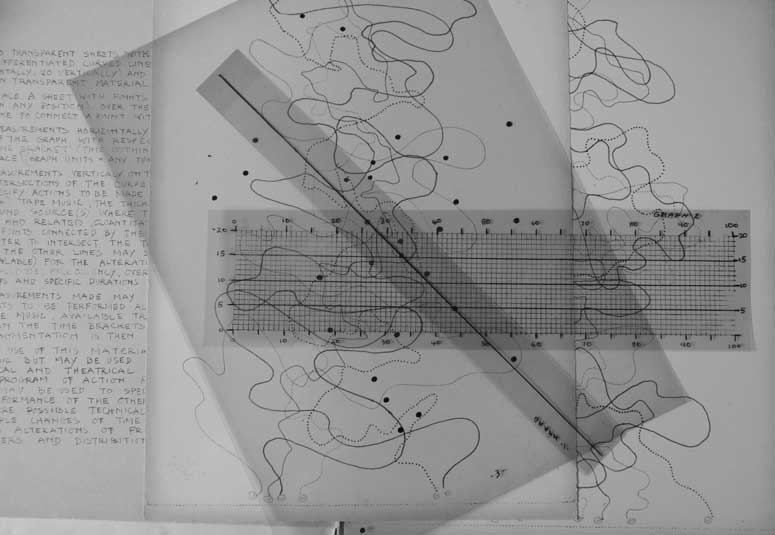 TRANSPARENT SHEETS WITH
DIFFERENTIATED CURVED LINE
20 VERTICALLY) AND
TRANSPARENT MATERIAL
A SHEET WITH POINTS
IN ANY POSITION OVER THE
TO CONNECT A POINT WIT
MEASUREMENTS HORIZONTALLY
OF THE GRAPH WITH RESPEC
BRACKET (TIME WITHIN
GRAPH UNITS = ANY
MEASUREMENTS VERTICALLY ON T
INTERSECTIONS OF THE CURVE
ACTIONS TO BE MADE
TAPE MUSIC, THE THICK
SOUND SOURCE(S) WHERE T
AND RELATED QUANTITA
POINTS CONNECTED BY THE
TO INTERSECT THE T
THE OTHER LINES MAY
FOR THE ALTERATI
FREQUENCY, OVER
AND SPECIFIC DURATIONS
MEASUREMENTS MADE MAY
TO BE PERFORMED AL
MUSIC. AVAILABLE TR
THE TIME BRACKETS
FRAGMENTATION IS THEN
USE OF THIS MATERIA
BUT MAY BE USED
AND THEATRICAL
PROGRAM OF ACTION
MAY BE USED TO SPEC
PERFORMANCE OF THE OTHE
POSSIBLE TECHNICAL
CHANGES OF TIME
ALTERATIONS OF FR
AND DISTRIBUTION
GRAPH 2
0 10 20 30 40 50 60 70 80 90 100
20 20
15 15
10 10
5 5
0 10 20 30 40 50 60 70 80 90 100